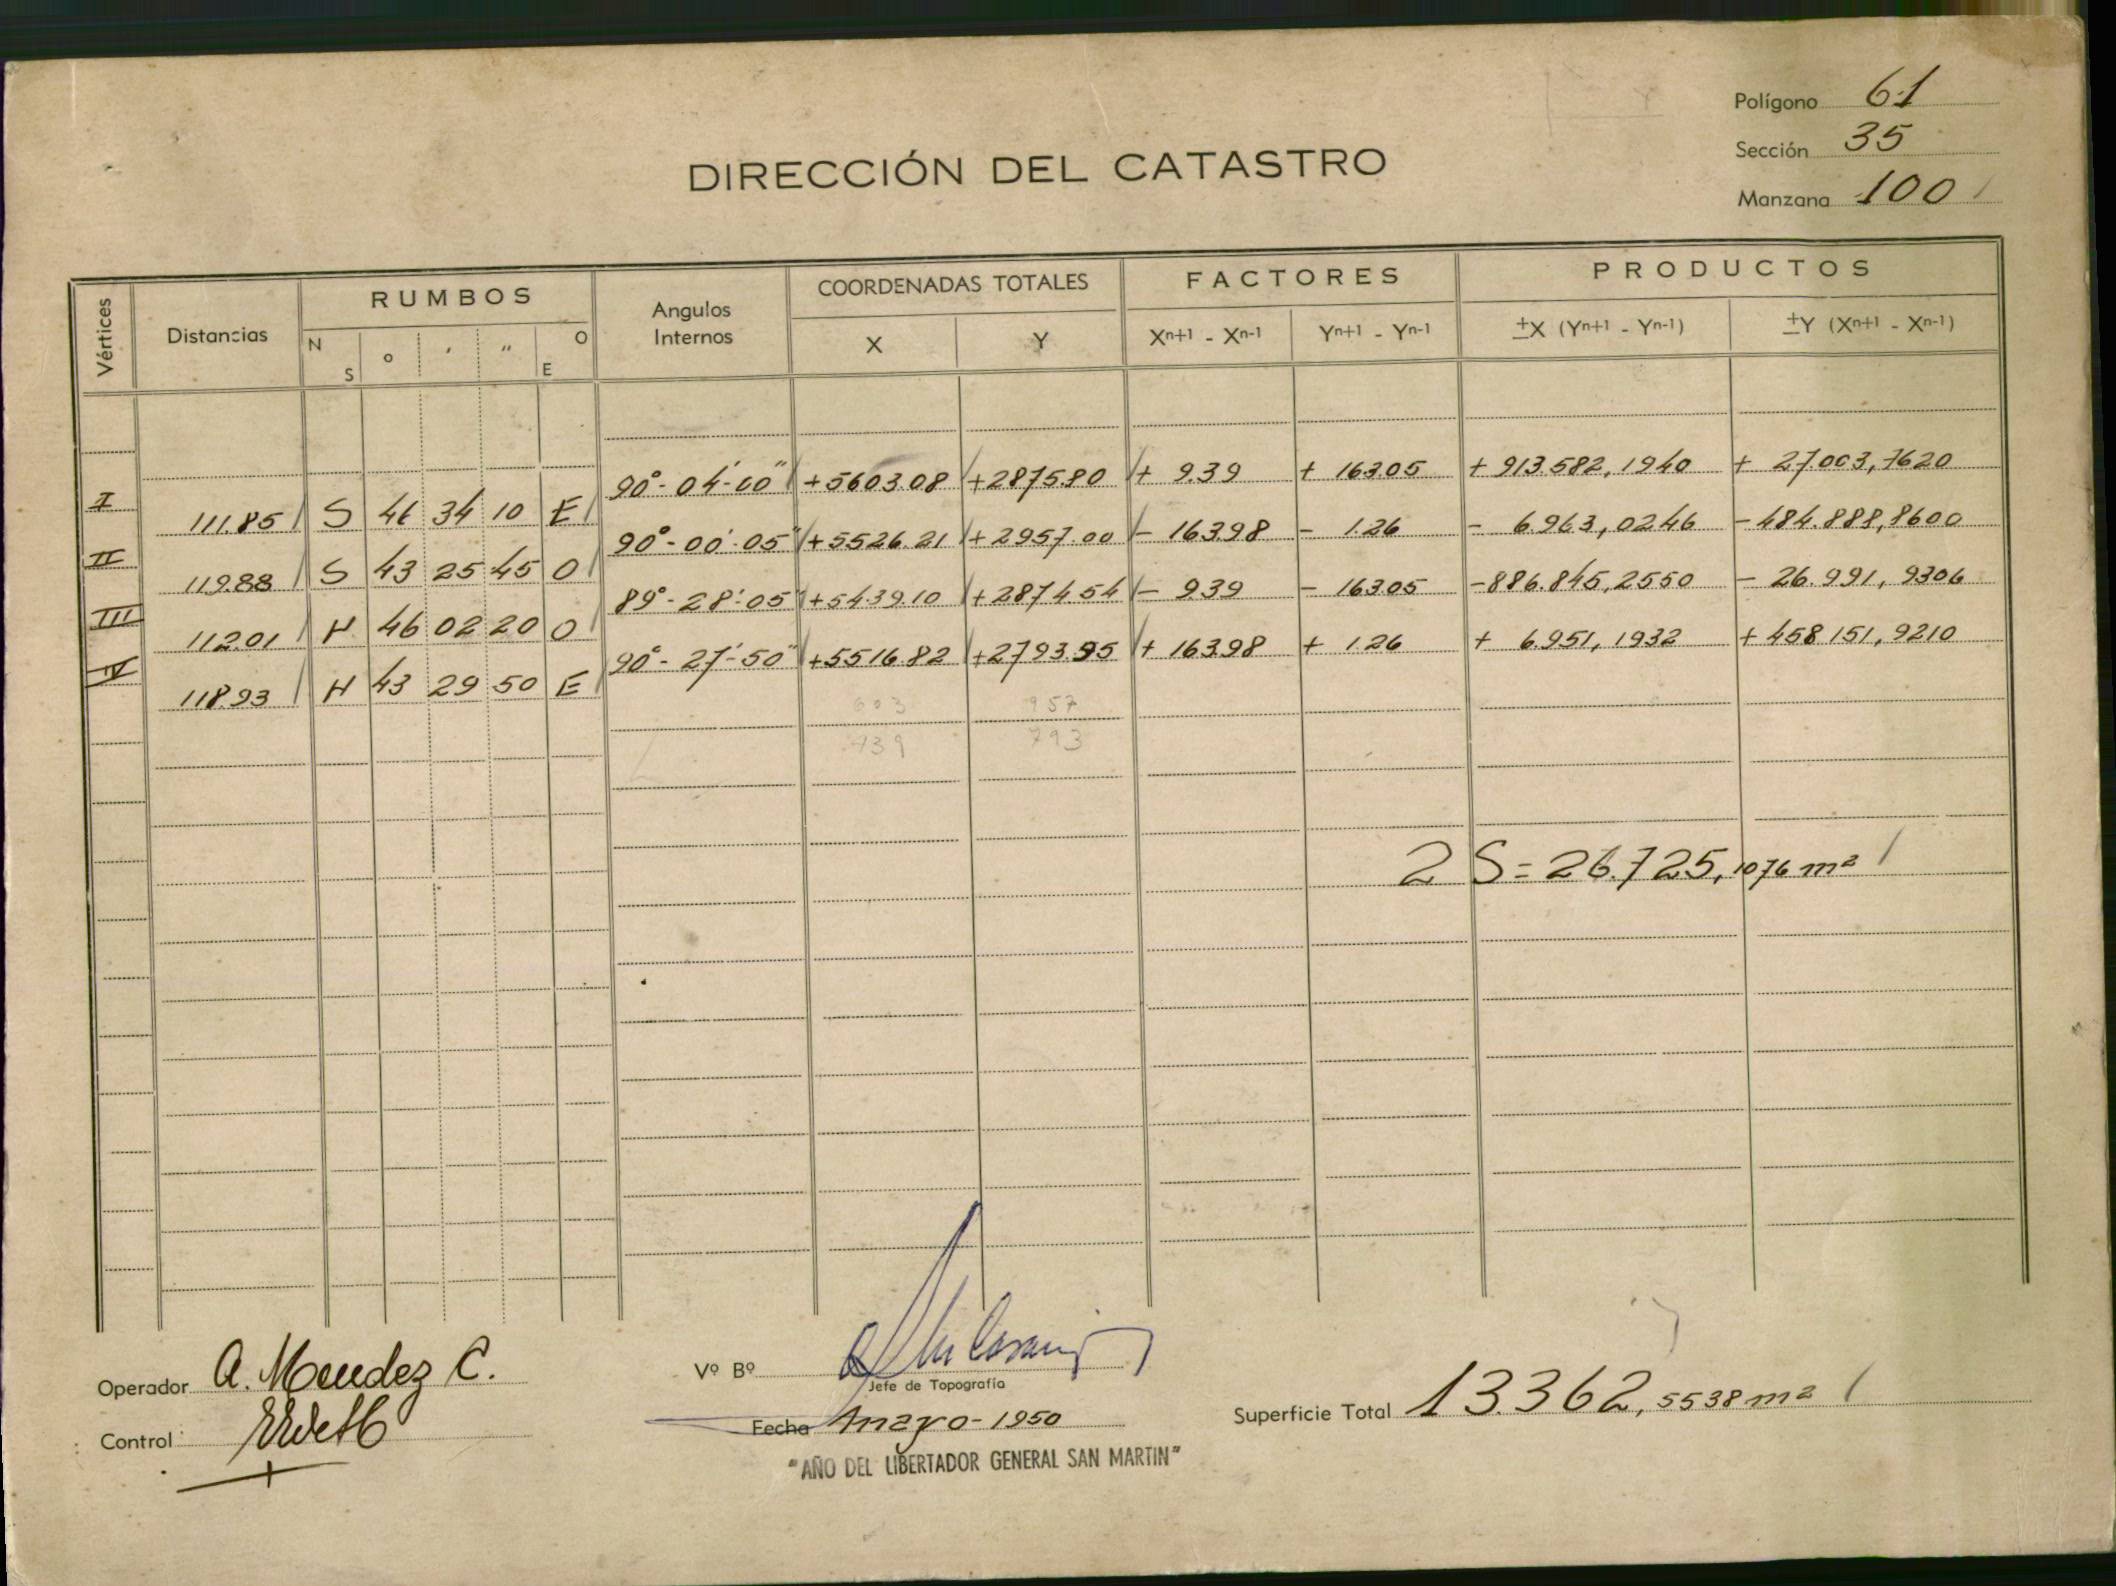 Polígono 61
Sección 35
DIRECCIÓN DEL CATASTRO
Manzana 100
Vértices Distancias RUMBOS Angulos Internos COORDENADAS TOTALES FACTORES PRODUCTOS
N S o ' " O E X Y Xn+1 - Xn-1 Yn+1 - Yn-1 ±X (Yn+1 - Yn-1) ±Y (Xn+1 - Xn-1)
I 90°-04'-00" +5603.08 +2875.80 + 9.39 + 163.05 + 913.582,1940 + 27.003,7620
111.85 S 46 34 10 E
II 90°-00'-05" +5526.21 +2957.00 - 163.98 - 1.26 - 6.963,0246 -484.888,8600
119.88 S 43 25 45 O
III 89°-28'-05" +5439.10 +2874.54 - 9.39 - 163.05 -886.845,2550 - 26.991,9306
112.01 N 46 02 20 O
IV 90°-27'-50" +5516.82 +2793.95 + 163.98 + 1.26 + 6.951,1932 + 458.151,9210
118.93 N 43 29 50 E
603 957
439 793
2 S = 26.725,1076 m²
Operador A. Mendez C.
Vº Bº
Jefe de Topografía
Superficie Total 13.362,5538 m²
Control
Fecha mayo-1950
"AÑO DEL LIBERTADOR GENERAL SAN MARTIN"